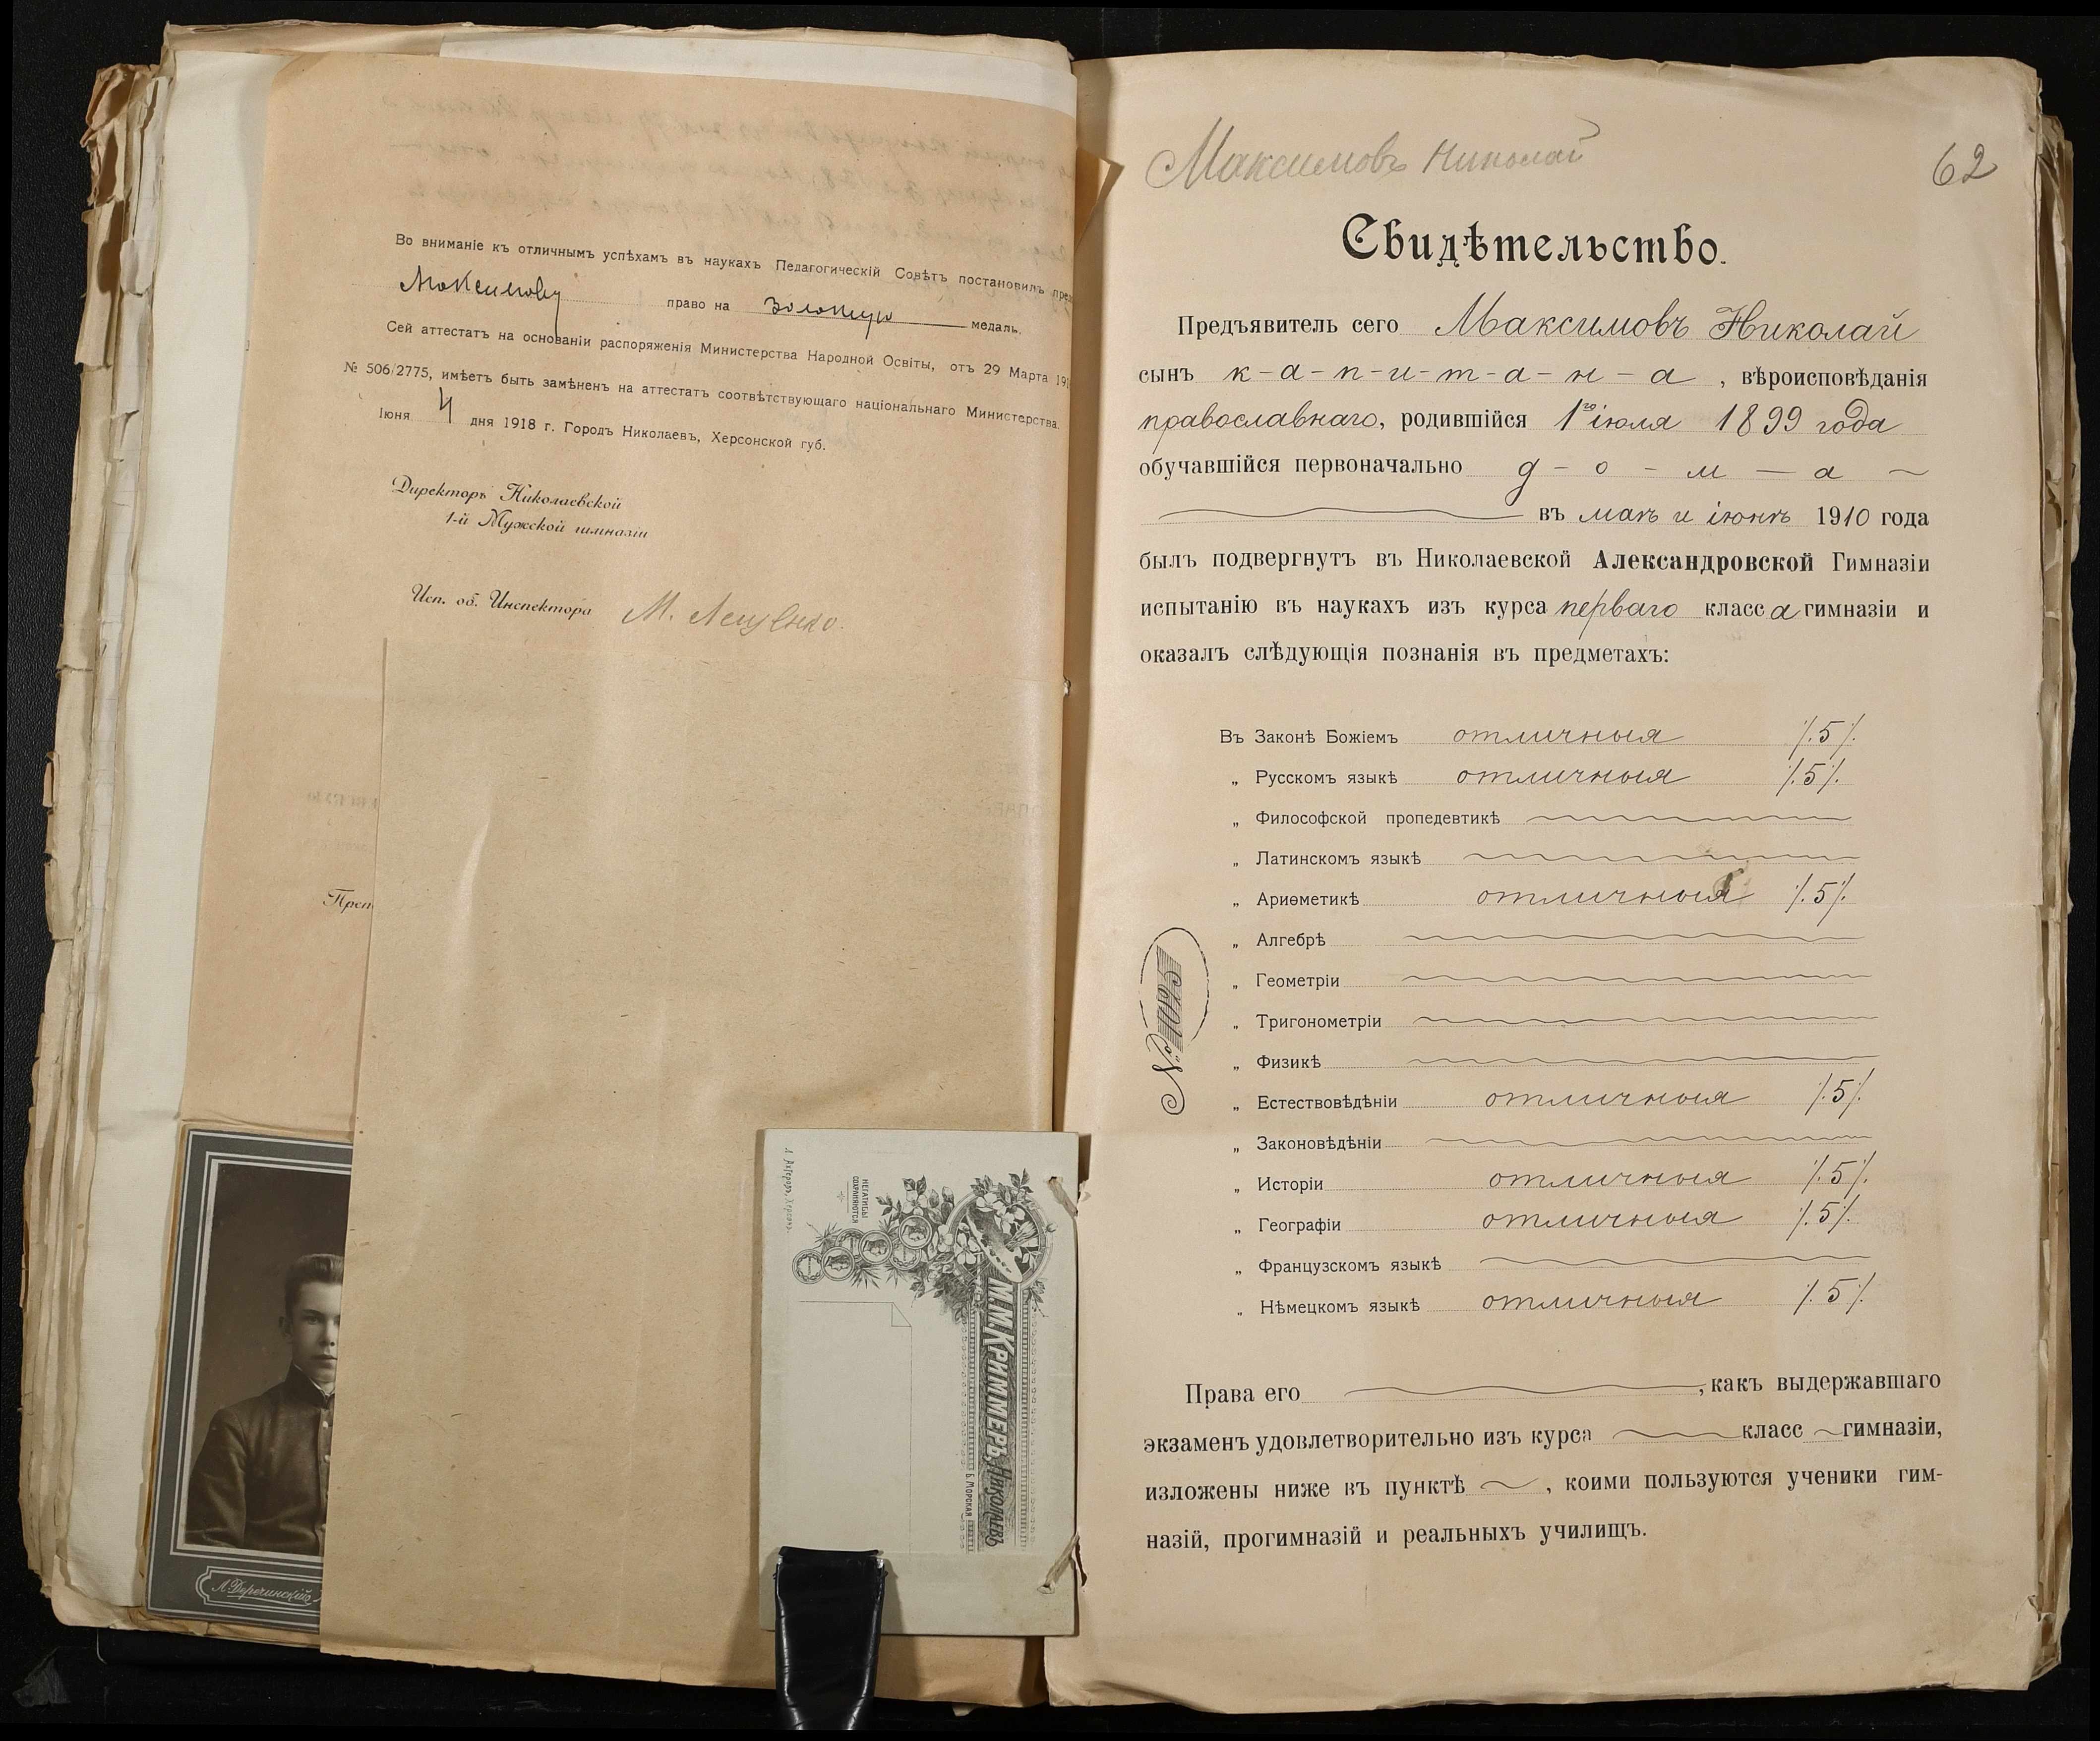 Во вниманіе къ отличнымъ успѣхамъ въ наукахъ Педагогическій Совѣтъ постановилъ
Максимову право на золотую медаль.
Сей аттестатъ на основаніи распоряженія Министерства Народной Освіты, отъ 29 Марта
№ 506/2775, имѣетъ быть замѣненъ на аттестатъ соотвѣтствующаго національнаго Министерства.
Іюня 4 дня 1918 г. Городъ Николаевъ, Херсонской губ.
Директоръ Николаевской
1-й Мужской гимназіи
Исп. об. Инспектора М. Лещенко.
Л. Деречинскій
НЕГАТИВЫ
СОХРАНЯЮТСЯ
М.И.КРИММЕРЪ, НИКОЛАЕВЪ
Б. МОРСКАЯ
Максимовъ Николай
62
Свидѣтельство.
Предъявитель сего Максимовъ Николай
сынъ к-а-п-и-т-а-н-а, вѣроисповѣданія
православнаго, родившійся 1го іюля 1899 года
обучавшійся первоначально д-о-м-а
въ маѣ и іюнѣ 1910 года
былъ подвергнутъ въ Николаевской Александровской Гимназіи
испытанію въ наукахъ изъ курса перваго класса гимназіи и
оказалъ слѣдующія познанія въ предметахъ:
Въ Законѣ Божіемъ отличныя /.5/.
„ Русскомъ языкѣ отличныя /.5/.
„ Философской пропедевтикѣ
„ Латинскомъ языкѣ
„ Ариѳметикѣ отличныя /.5/.
„ Алгебрѣ
„ Геометріи
„ Тригонометріи
„ Физикѣ
„ Естествовѣдѣніи отличныя /.5/.
„ Законовѣдѣніи
„ Исторіи отличныя /.5/.
„ Географіи отличныя /.5/.
„ Французскомъ языкѣ
„ Нѣмецкомъ языкѣ отличныя /.5/.
Права его , какъ выдержавшаго
экзаменъ удовлетворительно изъ курса класс гимназіи,
изложены ниже въ пунктѣ , коими пользуются ученики гим-
назій, прогимназій и реальныхъ училищъ.